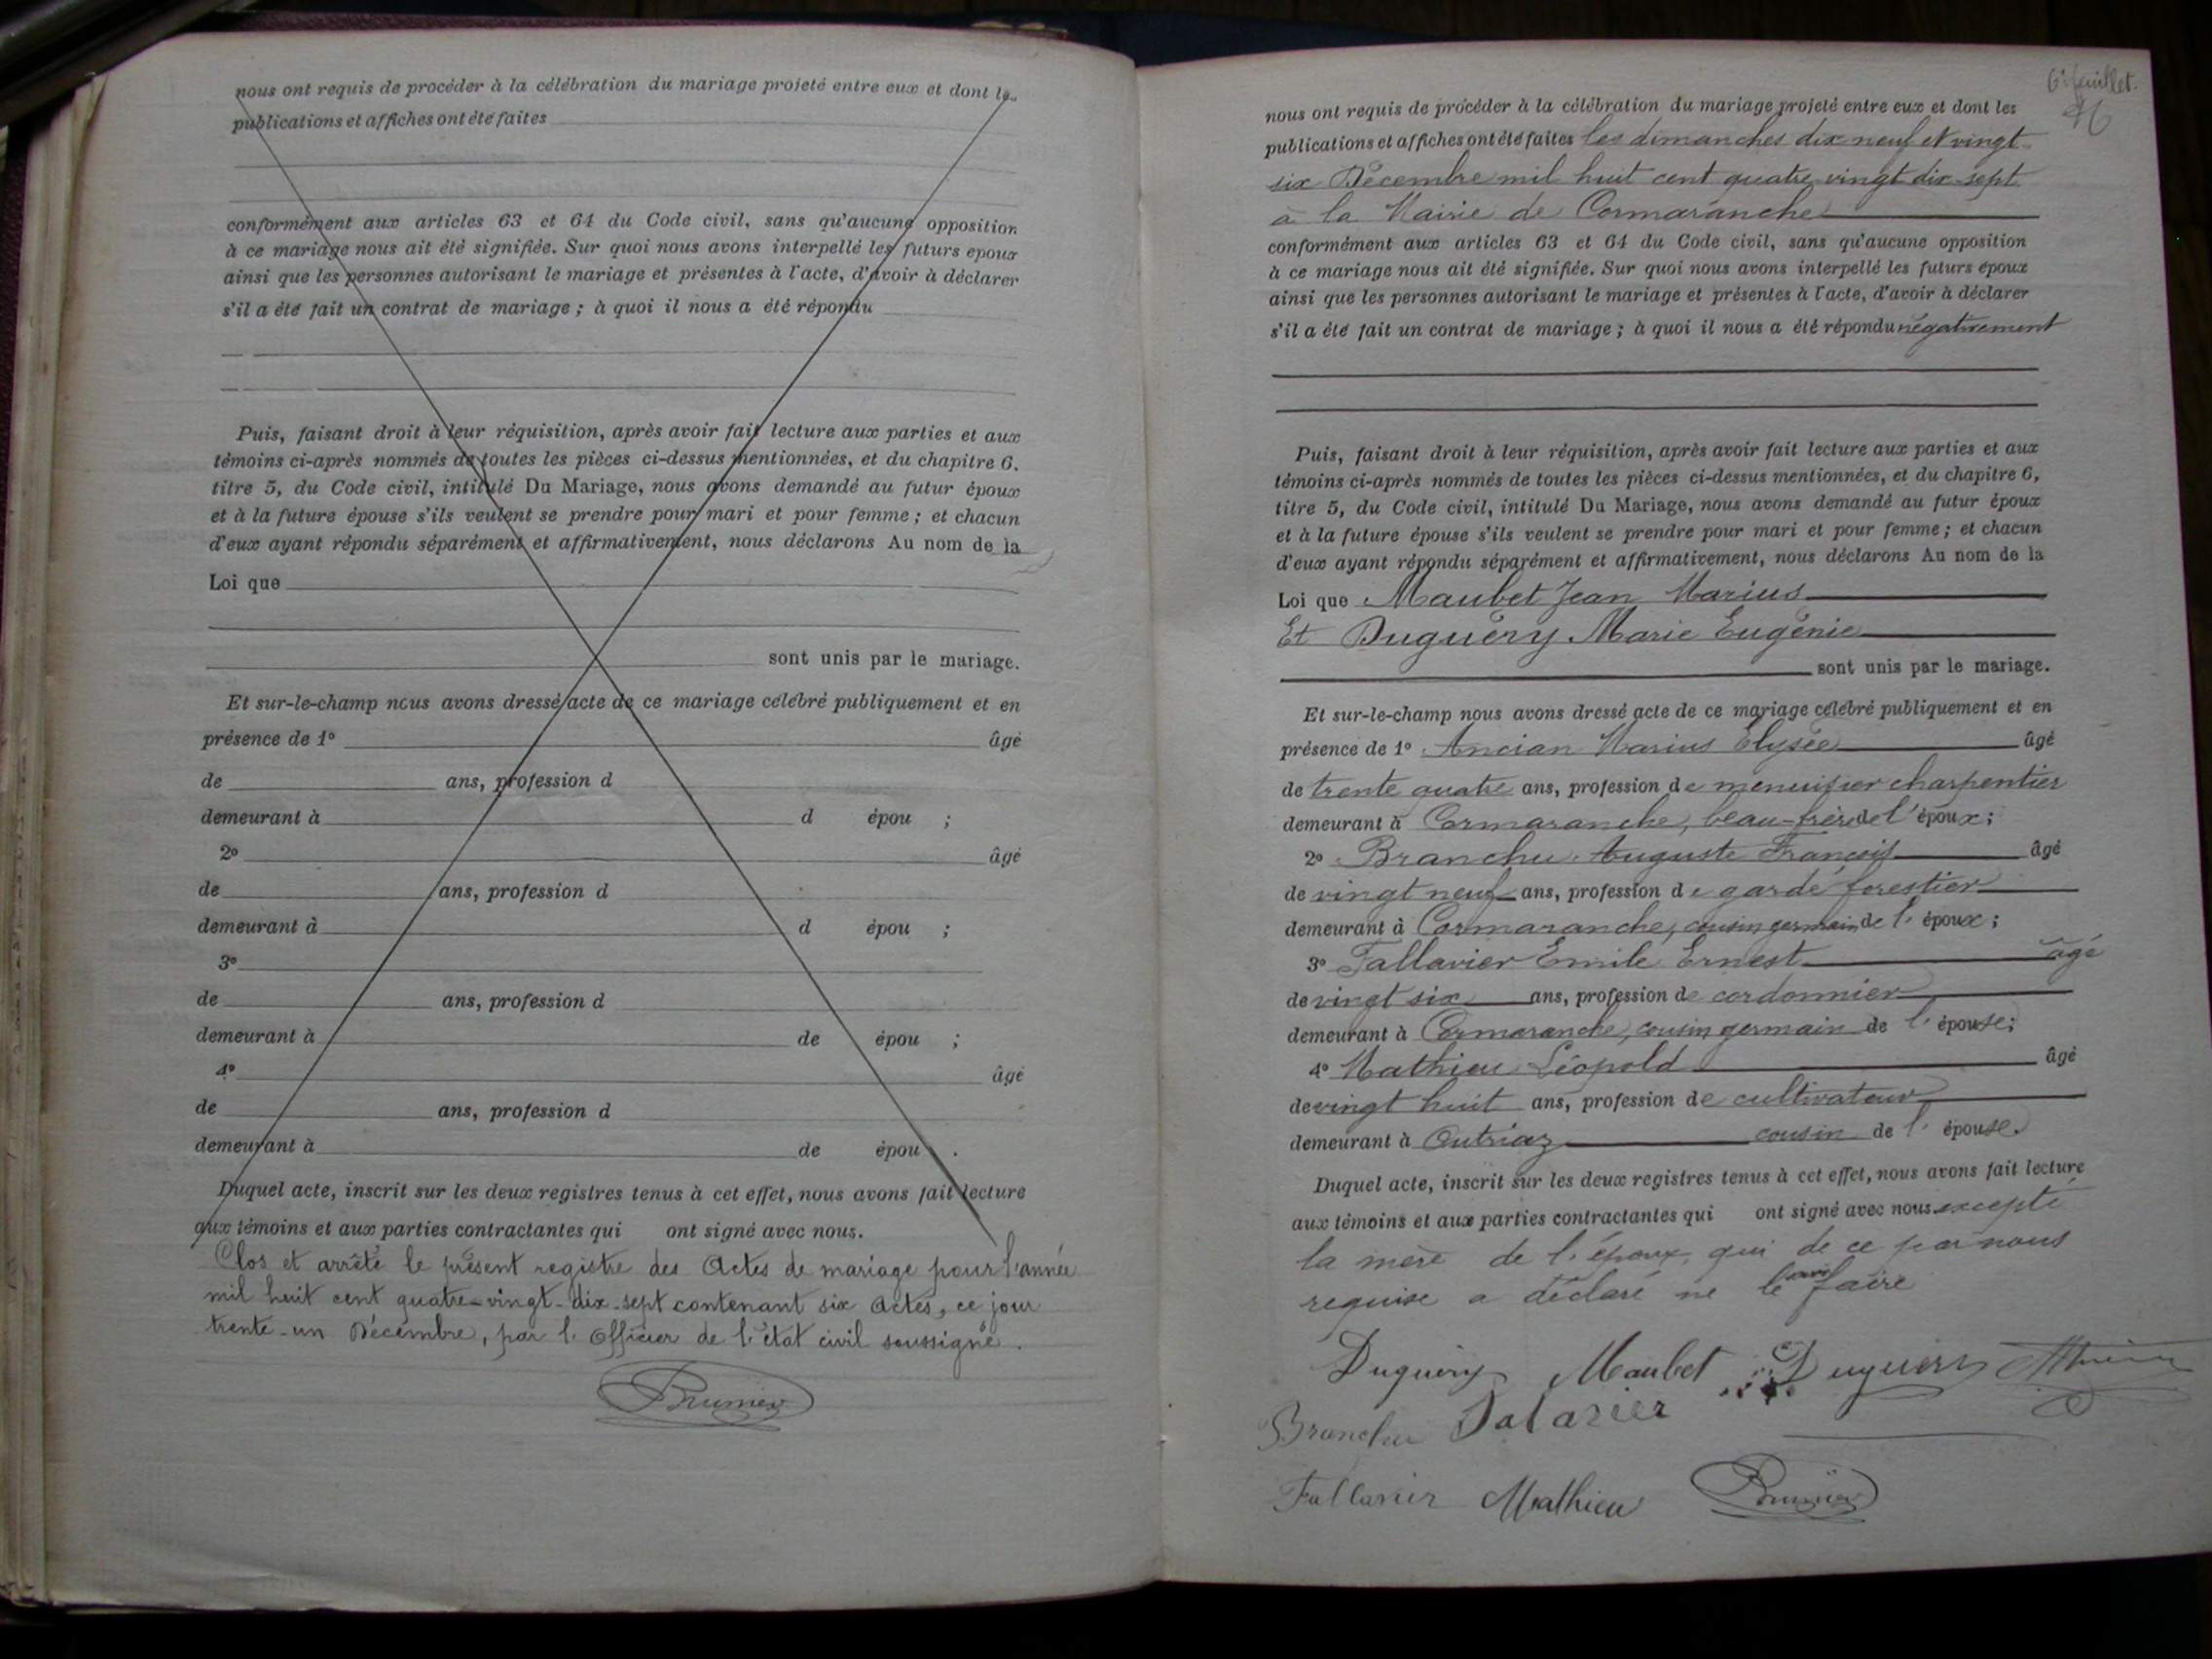 nous ont requis de procéder à la célébration du mariage projeté entre eux et dont les
publications et affiches ont été faites
conformément aux articles 63 et 64 du Code civil, sans qu'aucune opposition
à ce mariage nous ait été signifiée. Sur quoi nous avons interpellé les futurs époux
ainsi que les personnes autorisant le mariage et présentes à l'acte, d'avoir à déclarer
s'il a été fait un contrat de mariage ; à quoi il nous a été répondu
Puis, faisant droit à leur réquisition, après avoir fait lecture aux parties et aux
témoins ci-après nommés de toutes les pièces ci-dessus mentionnées, et du chapitre 6.
titre 5, du Code civil, intitulé Du Mariage, nous avons demandé au futur époux
et à la future épouse s'ils veulent se prendre pour mari et pour femme ; et chacun
d'eux ayant répondu séparément et affirmativement, nous déclarons Au nom de la
Loi que
sont unis par le mariage.
Et sur-le-champ nous avons dressé acte de ce mariage célébré publiquement et en
présence de 1º âgé
de ans, profession d
demeurant à d épou ;
2º âgé
de ans, profession d
demeurant à d épou ;
3º
de ans, profession d
demeurant à de épou ;
4º âgé
de ans, profession d
demeurant à de épou .
Duquel acte, inscrit sur les deux registres tenus à cet effet, nous avons fait lecture
aux témoins et aux parties contractantes qui ont signé avec nous.
Clos et arrêté le présent registre des Actes de mariage pour l'année
mil huit cent quatre-vingt-dix-sept contenant six actes, ce jour
trente-un Décembre, par l'officier de l'état civil soussigné.
Brunier
6e feuillet.
nous ont requis de procéder à la célébration du mariage projeté entre eux et dont les
publications et affiches ont été faites les dimanches dix neuf et vingt
six Décembre mil huit cent quatre vingt dix-sept
à la Mairie de Cormaranche
conformément aux articles 63 et 64 du Code civil, sans qu'aucune opposition
à ce mariage nous ait été signifiée. Sur quoi nous avons interpellé les futurs époux
ainsi que les personnes autorisant le mariage et présentes à l'acte, d'avoir à déclarer
s'il a été fait un contrat de mariage ; à quoi il nous a été répondu négativement
Puis, faisant droit à leur réquisition, après avoir fait lecture aux parties et aux
témoins ci-après nommés de toutes les pièces ci-dessus mentionnées, et du chapitre 6,
titre 5, du Code civil, intitulé Du Mariage, nous avons demandé au futur époux
et à la future épouse s'ils veulent se prendre pour mari et pour femme ; et chacun
d'eux ayant répondu séparément et affirmativement, nous déclarons Au nom de la
Loi que Maubet Jean Marius
Et Duguéry Marie Eugénie
sont unis par le mariage.
Et sur-le-champ nous avons dressé acte de ce mariage célébré publiquement et en
présence de 1º Ancian Marius Elysée âgé
de trente quatre ans, profession de menuisier charpentier
demeurant à Cormaranche, beau-frère de l'époux ;
2º Branchu Auguste François âgé
de vingt neuf ans, profession de garde forestier
demeurant à Cormaranche, cousin germain de l'époux ;
3º Fallavier Emile Ernest âgé
de vingt six ans, profession de cordonnier
demeurant à Cormaranche, cousin germain de l'épouse ;
4º Mathieu Léopold âgé
de vingt huit ans, profession de cultivateur
demeurant à Outriaz cousin de l'épouse.
Duquel acte, inscrit sur les deux registres tenus à cet effet, nous avons fait lecture
aux témoins et aux parties contractantes qui ont signé avec nous excepté
la mère de l'époux, qui de ce par nous
requise a déclaré ne le savoir faire
Duguéry Maubet Duguéry
Branchu
Fallavier Mathieu Brunier